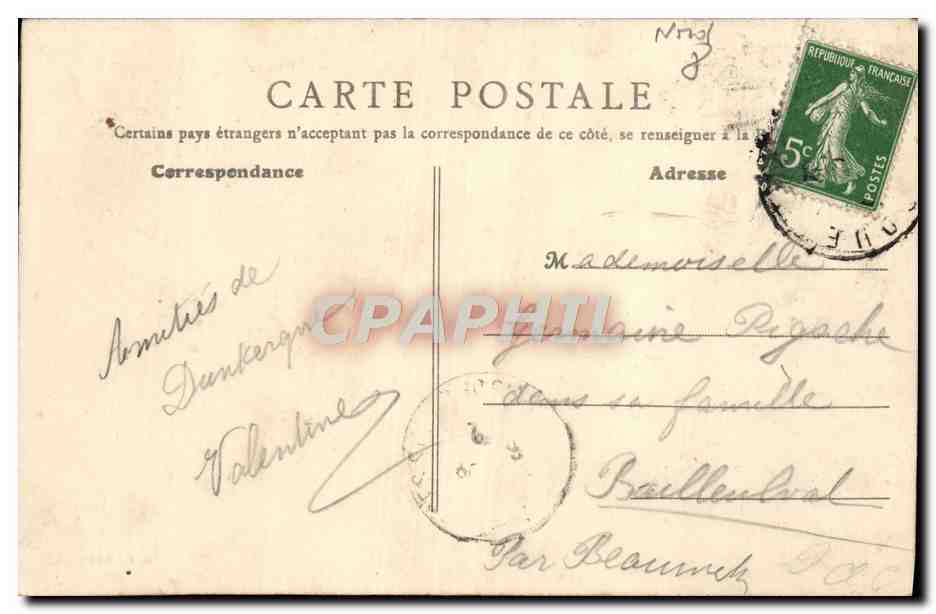 Nord
8
CARTE POSTALE
Certains pays étrangers n'acceptant pas la correspondance de ce côté, se renseigner à la
Correspondance
Adresse
REPUBLIQUE FRANÇAISE
5c
POSTES
QUE
Mademoiselle
Germaine Pigache
dans sa famille
Bailleulval
Par Beaumetz
P d C
Amitiés de
Dunkerque
Valentine
CPAPHIL